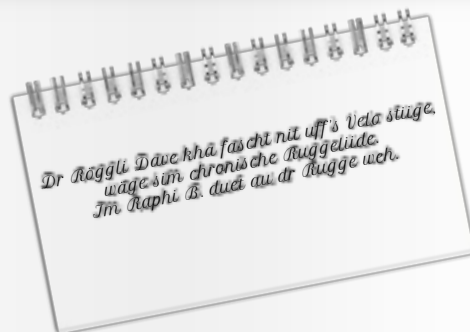 Dr Räggli Dave kha fascht nit uff's Vela stiige,
wäge sim chronische Ruggeliide.
Im Raphi B. duet au dr Rugge weh.